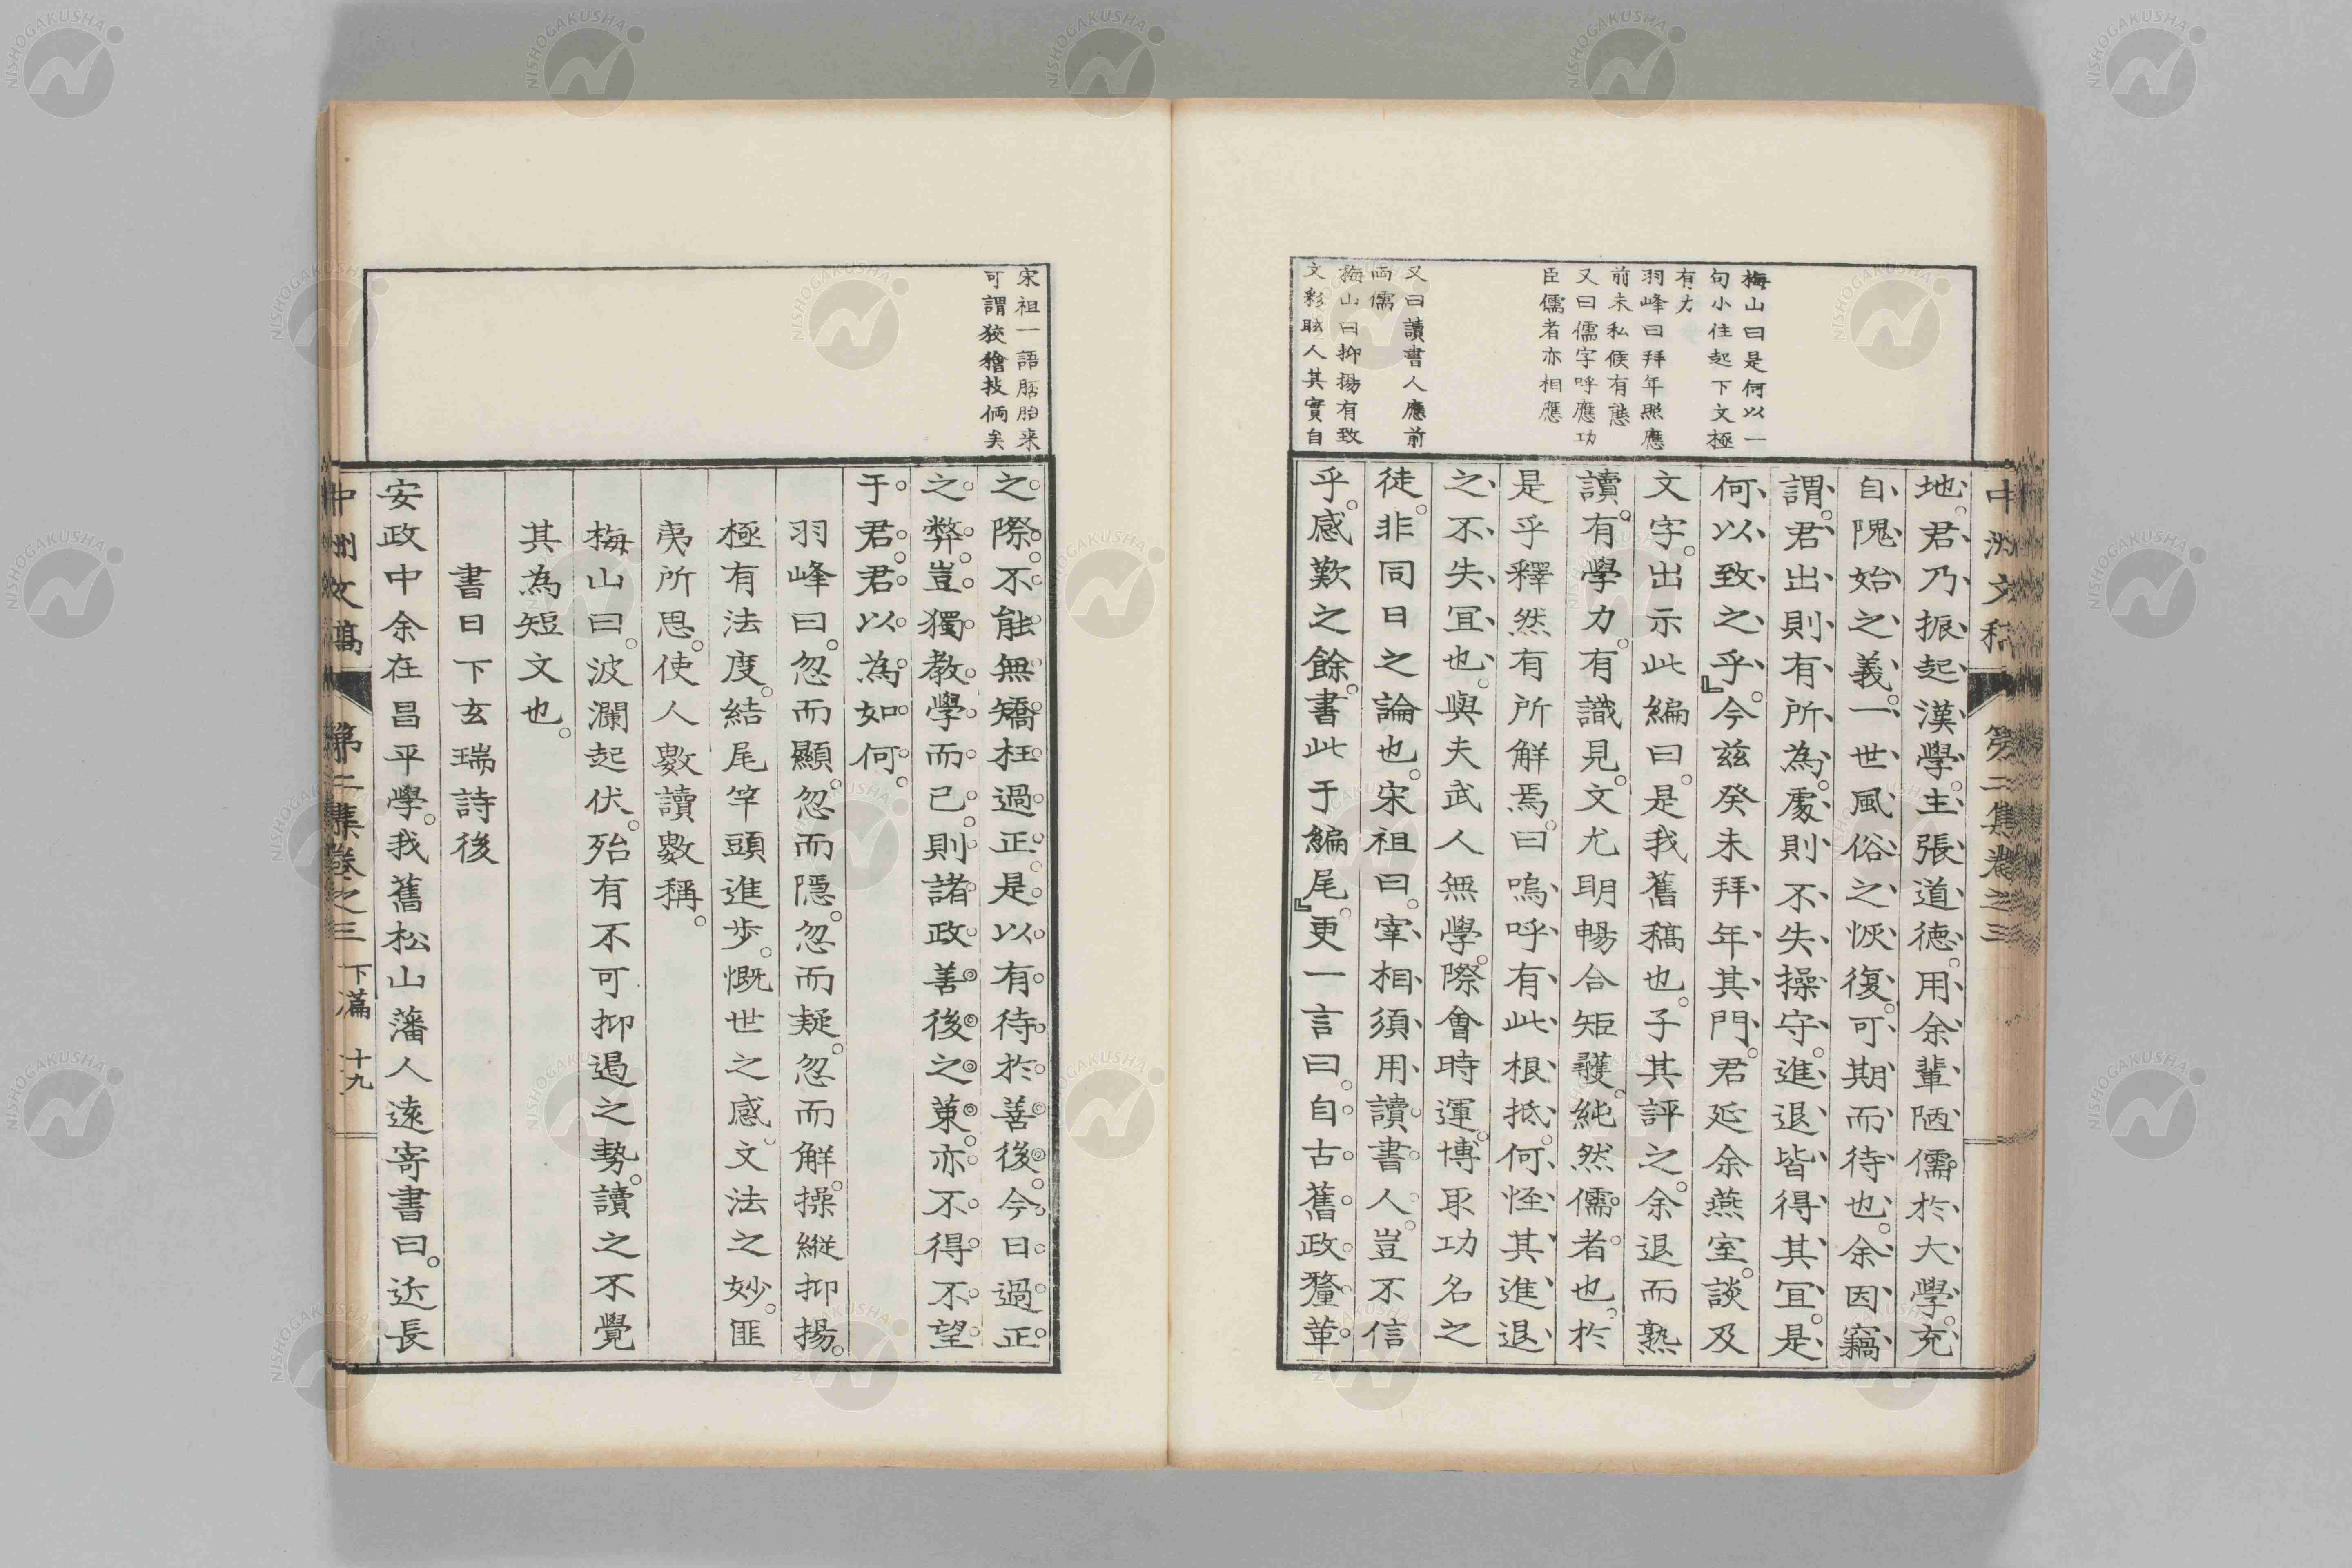 梅山曰是何以一
句小住起下文極
有力
羽峰曰拜年照應
前未私候有態
又曰儒字呼應功
臣儒者亦相應
又曰讀書人應前
両儒
梅山曰抑揚有致
文彩眩人其實自
中洲文稿 第二集卷之三
地。君乃振起漢學。主張道徳。用余輩陋儒於大學。充
自隗始之義。一世風俗之恢復。可期而待也。余因竊
謂。君出則有所為。處則不失操守。進退皆得其宜。是
何以致之乎。』今茲癸未拜年其門。君延余燕室。談及
文字。出示此編曰。是我舊稿也。子其評之。余退而熟
讀。有學力。有識見。文尤明暢合矩矱。純然儒者也。於
是乎釋然有所解焉。曰嗚呼有此根抵。何恠其進退
之不失宜也。與夫武人無學。際會時運。博取功名之
徒。非同日之論也。宋祖曰。宰相須用讀書人。豈不信
乎。感歎之餘。書此于編尾。』更一言曰。自古舊政釐革
宋祖一語胚胎来
可謂狡獪技倆矣
之際。不能無矯枉過正。是以有待於善後。今日過正
之弊。豈獨教學而已。則諸政善後之策。亦不得不望
于君。君以為如何。
羽峰曰。忽而顯。忽而隱。忽而疑。忽而解。操縦抑揚。
極有法度。結尾竿頭進歩。慨世之感。文法之妙。匪
夷所思。使人數讀數稱。
梅山曰。波瀾起伏。殆有不可抑遏之勢。讀之不覺
其為短文也。
書日下玄瑞詩後
安政中余在昌平學。我舊松山藩人遠寄書曰。近長
中洲文稿 第二集卷之三 下篇 十九